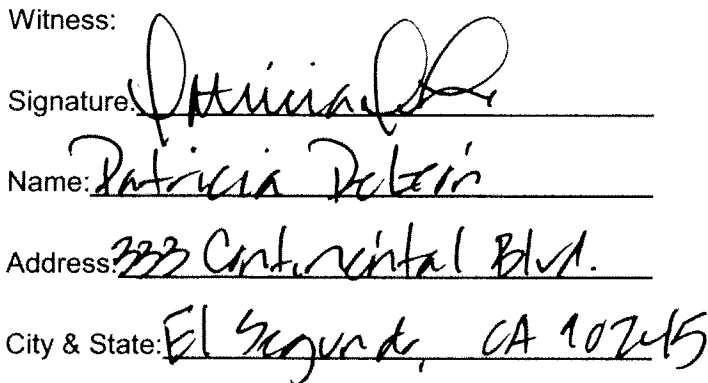 Witness:
Signature: Patricia
Name: Patricia
Address: 333 Continental Blvd.
City & State: El Segundo, CA 90245